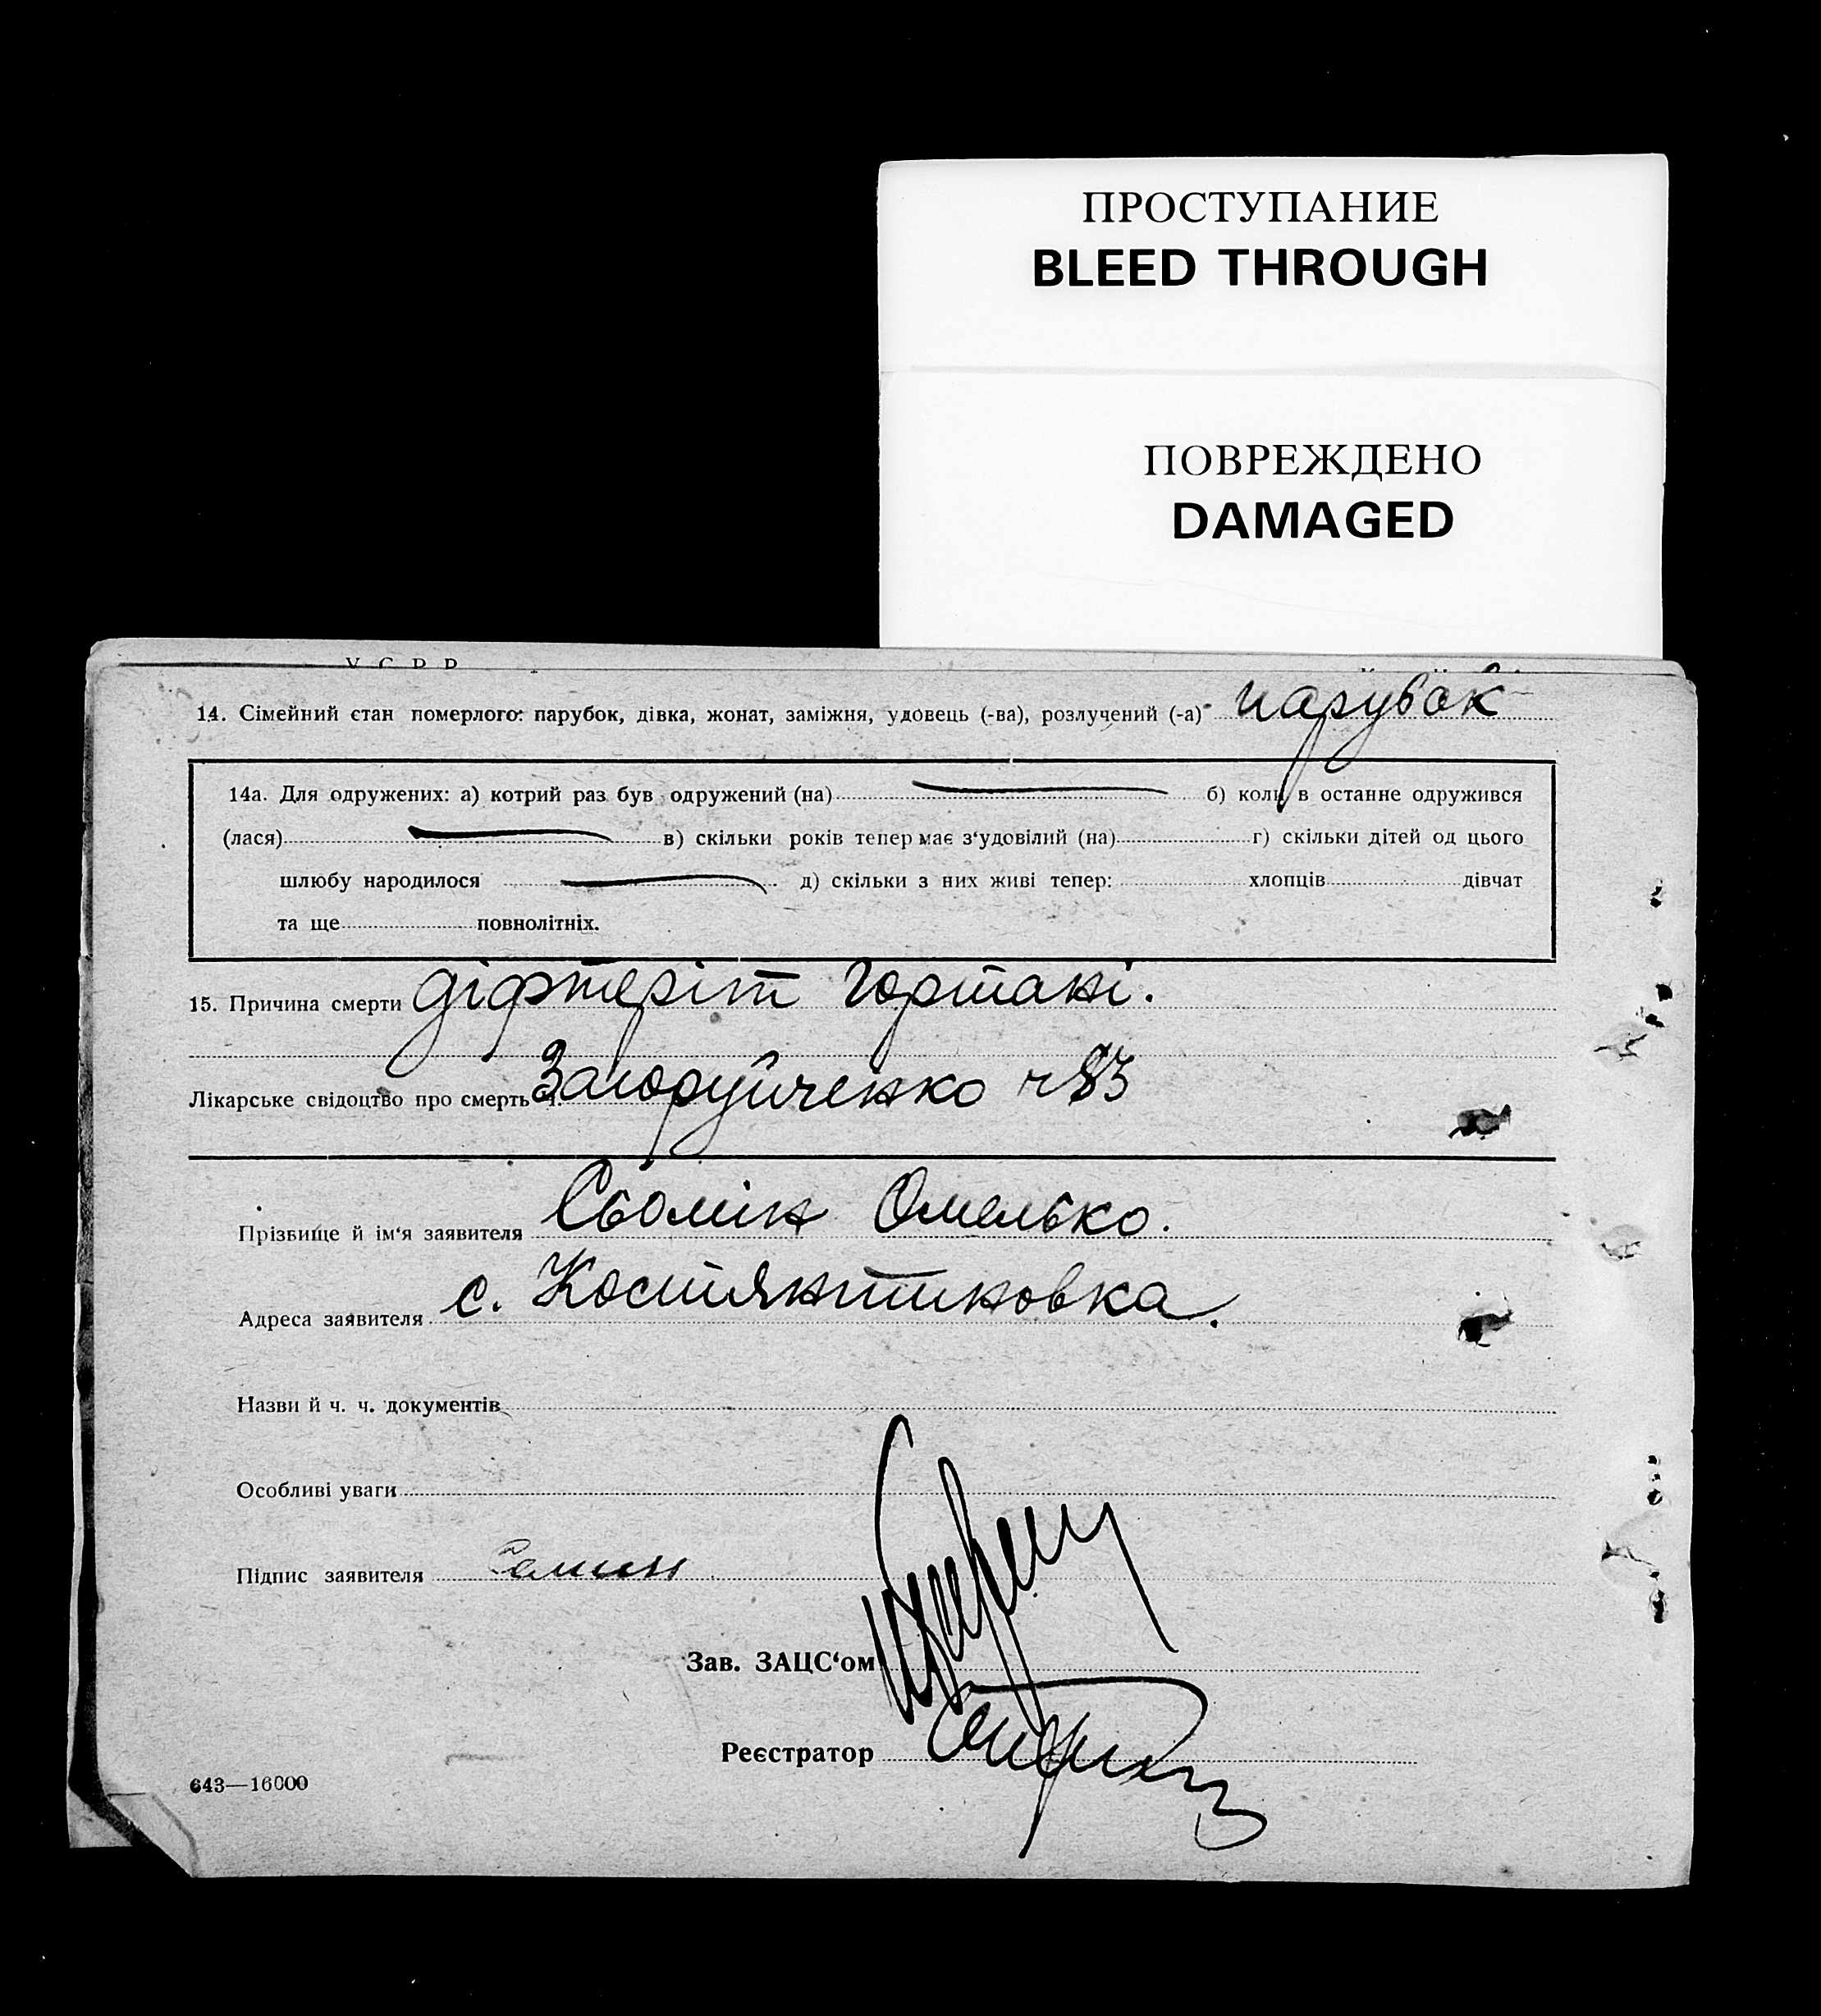 ПРОСТУПАНИЕ
BLEED THROUGH
ПОВРЕЖДЕНО
DAMAGED
У С Р Р
14. Сімейний стан померлого: парубок, дівка, жонат, заміжня, удовець (-ва), розлучений (-а) парубок
14а. Для одружених: а) котрий раз був одружений (на) б) коли в останне одружився
(лася) в) скільки років тепер має з‘удовілий (на) г) скільки дітей од цього
шлюбу народилося д) скільки з них живі тепер: хлопців дівчат
та ще повнолітніх.
15. Причина смерти діфтеріт гортані.
Лікарське свідоцтво про смерть ч. Загоруйченко ч 83
Прізвище й ім‘я заявителя Сьомін Омелько.
Адреса заявителя с. Костянтиновка.
Назви й ч. ч. документів
Особливі уваги
Підпис заявителя Семин
Зав. ЗАЦС‘ом
Реєстратор
643—16000